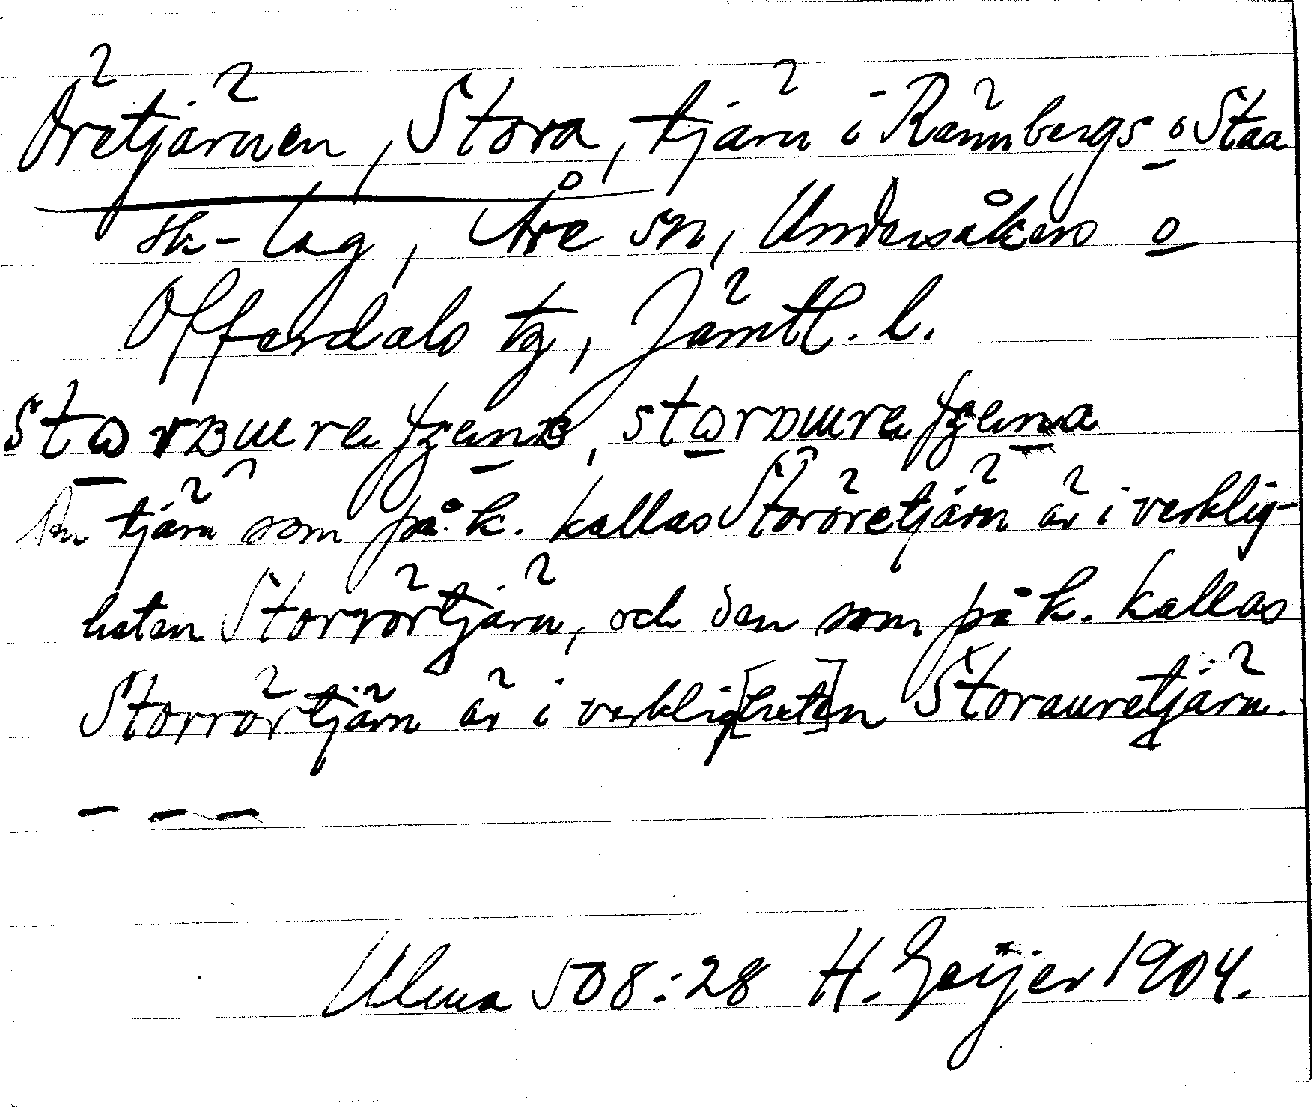 Öretjärnen, Stora, tjärn i Rännbergs o Staa
sk-lag, Åre sn, Undersåkers o
Offerdals tg, Jämtl. l.
En tjärn som på k. kallas Storöretjärn är i verklig-
heten Storrörtjärn, och den som på k. kallas
Storrörtjärn är i verklig[het]en Storauretjärn.
– – –
Ulma 508:28 H. Geijer 1904.